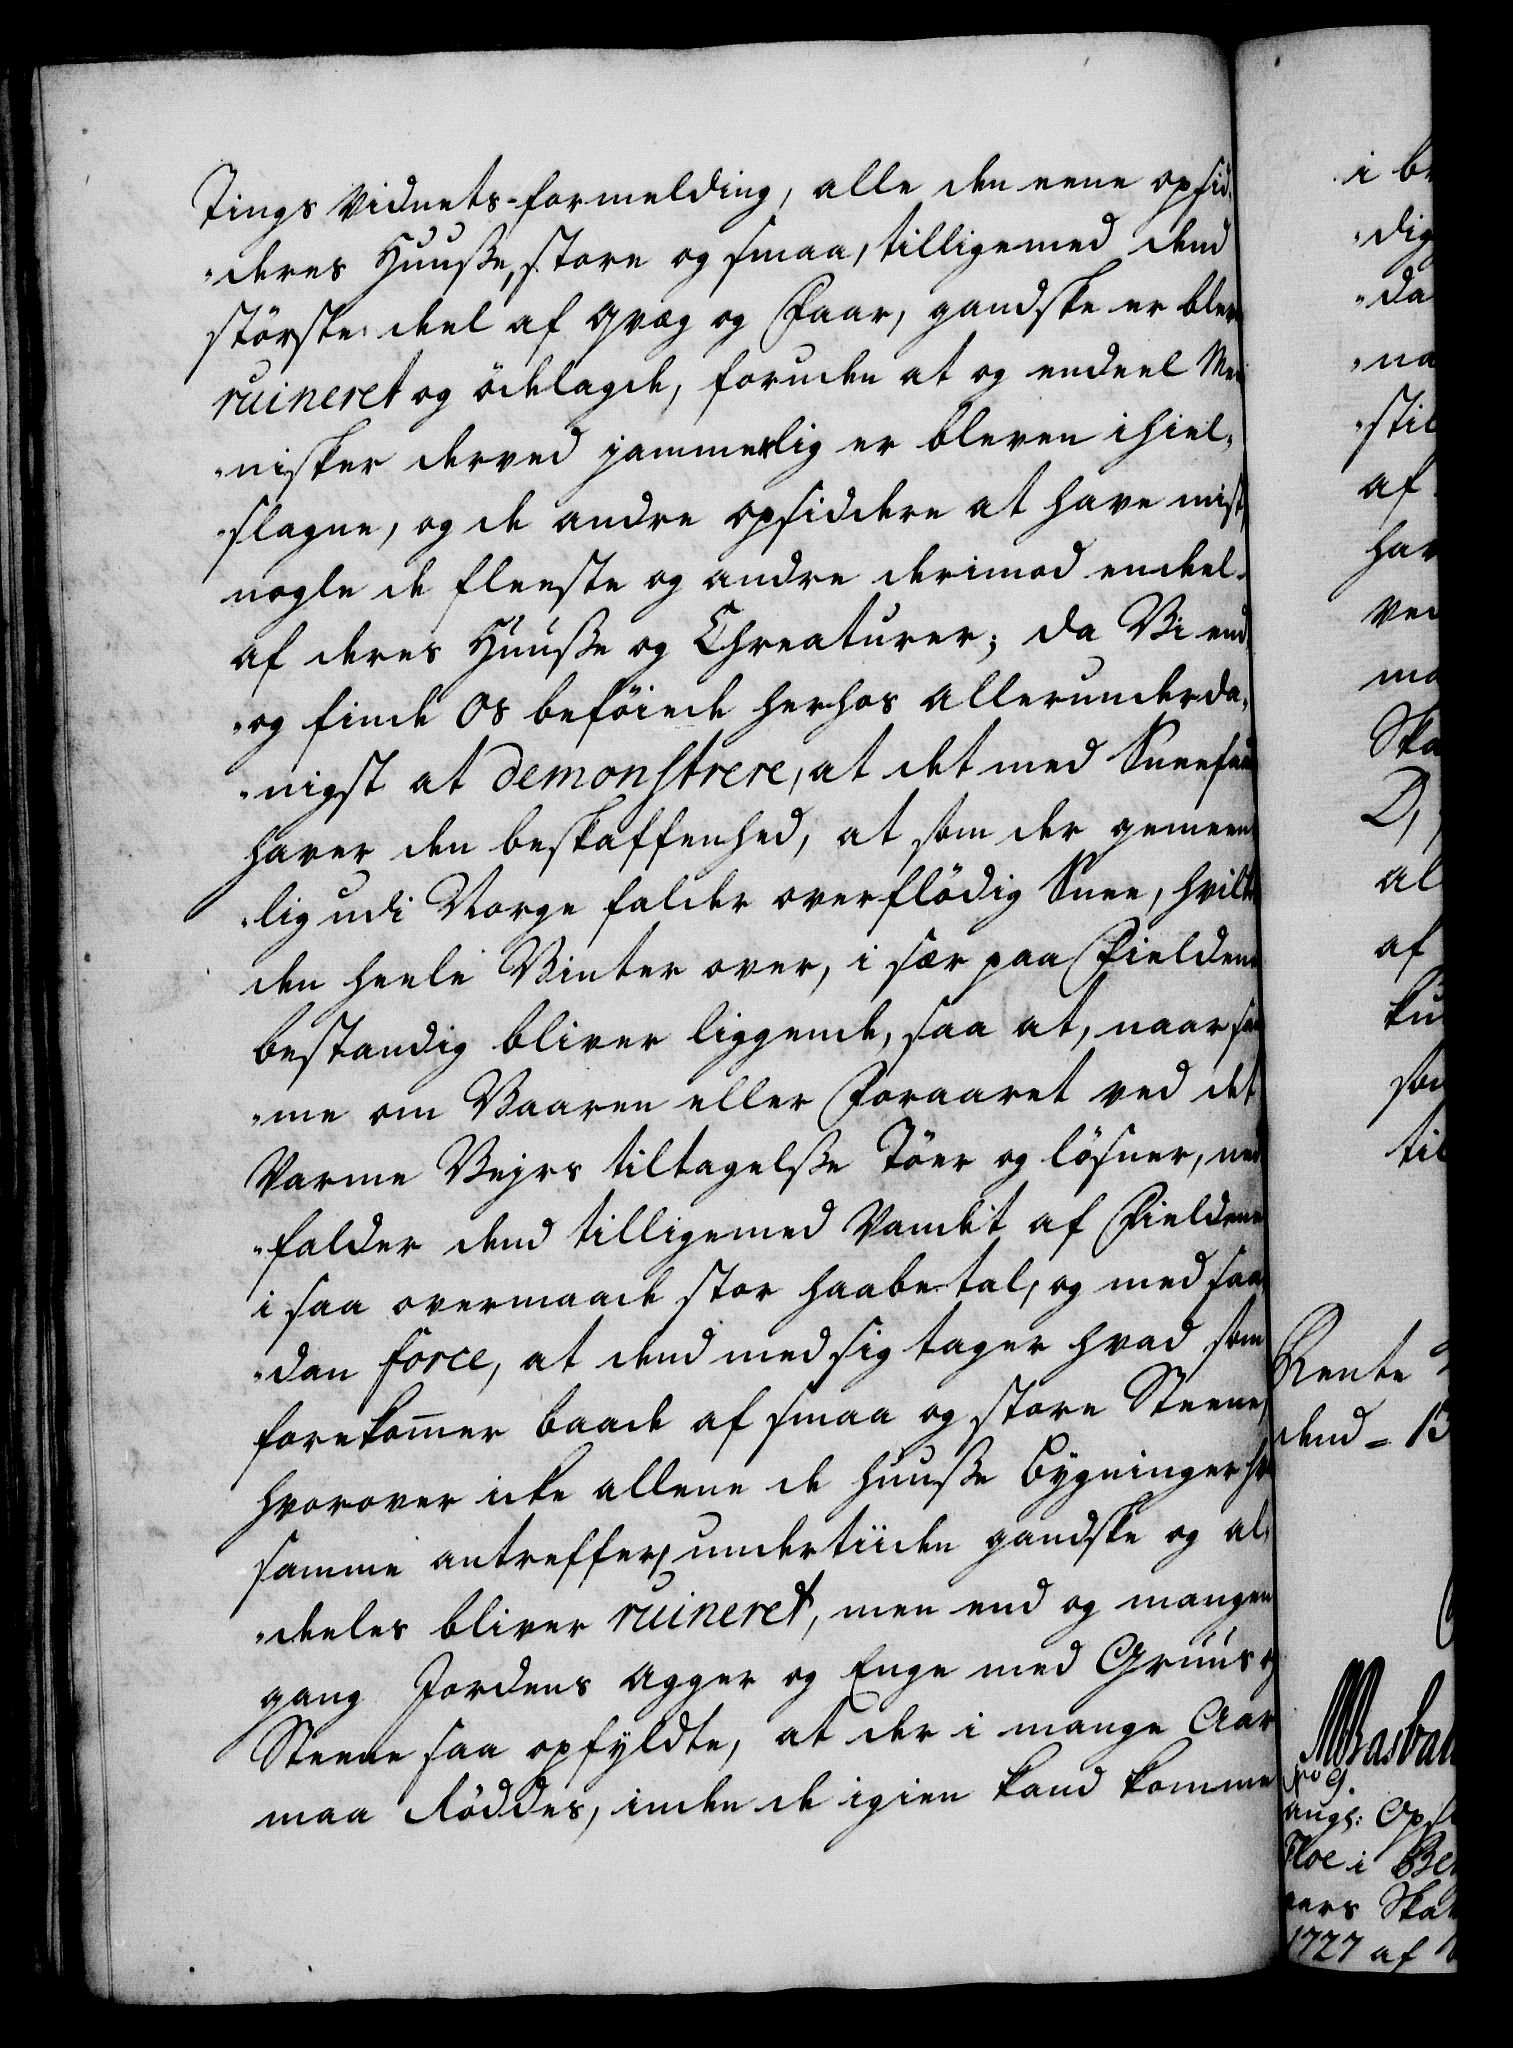 Tings Vidnets-formelding, alle den eene opsid-
"deres Huuße, store og smaa, tilligemed dend
störste deel af Qvæg og Faar, gandske er blev
ruineret og ödelagde, foruden at og endeel Men
"nisker derved jammerlig er bleven ihiel-
"slagne, og de andre opsiddere at have mist,
nogle de fleeste og andre derimod endeel
af deres Huuße og Chreaturer; da Vi end
"og finde Os beföiede herhos allerunderda-
"nigst at demonstrere, at det med Sneefald
haver den beskaffenhed, at som der gemeen
"lig udi Norge falder overflödig Snee, hvilke
den heele Vinter over, i sær paa Fieldene
bestandig bliver liggende, saa at, naar sam
"me om Vaaren eller Foraaret ved det
Varme Vejrs tiltagelße Töer og lösner, ned
"falder dend tilligemed Vandet af Fieldene
i saa overmaade stor haabe-tal, og med saa-
"dan force, at dend med sig tager hvad som
forekom̅er baade af smaa og store Steene,
hvorover icke allene de huuße Bygninger
samme antreffer, undertiiden gandske og al-
"deeles bliver ruineret, men end og mangen
gang Jordens Agger og Enge med Gruus og
Steene saa opfyldte, at der i mange Aar
maa Röddes, inden de igien kand komme
i br
"dig
"da
"na
"stil
af
har
ved
ma
Ska
D,
al
af
ku
som
til
Rente
dend = 13
No 9.
ang: Ops
Floe i Ber
aars Skat
1727 af